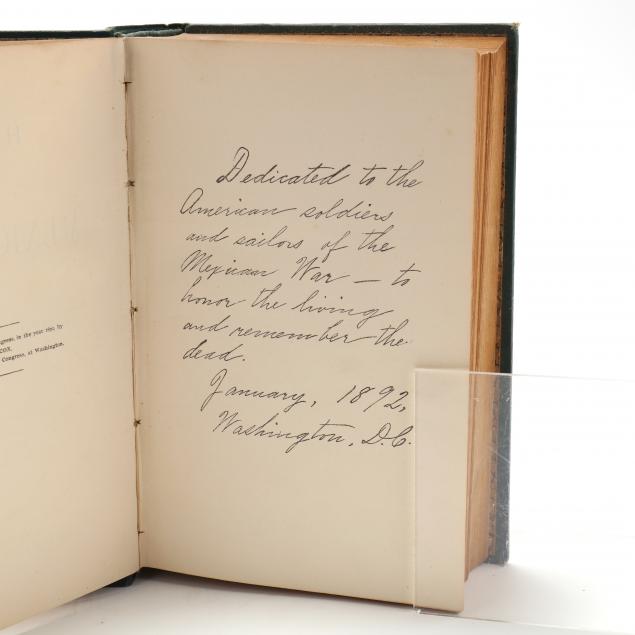 ngress, in the year 1892 by
COX,
Congress, at Washington.
Dedicated to the
American soldiers
and sailors of the
Mexican War — to
honor the living
and remember the
dead.
January, 1892,
Washington, D.C.